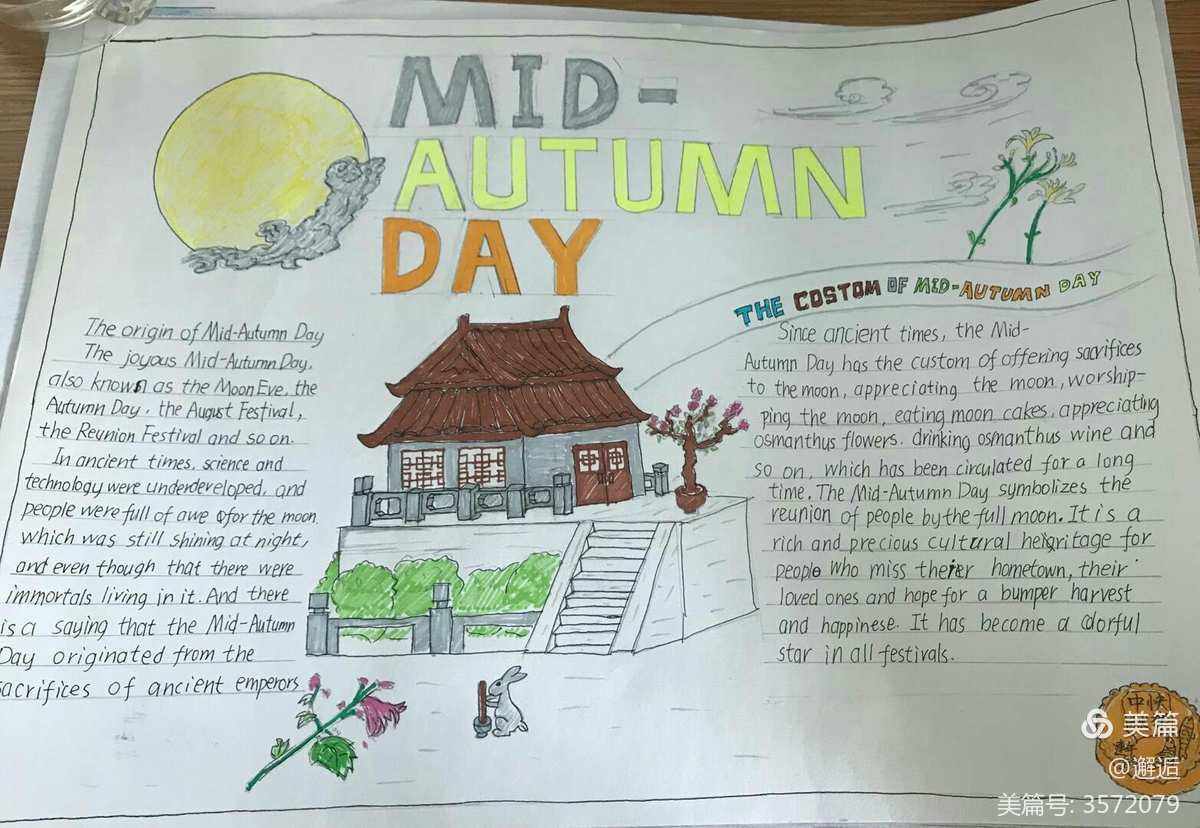 MID-
AUTUMN
DAY
The origin of Mid-Autumn Day
The joyous Mid-Autumn Day,
also known as the Moon Eve, the
Autumn Day, the August Festival,
the Reunion Festival and so on.
In ancient times, science and
technology were underdeveloped, and
people were full of awe for the moon
which was still shining at night,
and even though that there were
immortals living in it. And there
is a saying that the Mid-Autumn
Day originated from the
sacrifices of ancient emperors
THE COSTOM OF MID-AUTUMN DAY
Since ancient times, the Mid-
Autumn Day has the custom of offering sacrifices
to the moon, appreciating the moon, worship-
ping the moon, eating moon cakes, appreciating
osmanthus flowers. drinking osmanthus wine and
so on, which has been circulated for a long
time. The Mid-Autumn Day symbolizes the
reunion of people by the full moon. It is a
rich and precious cultural heigritage for
people who miss theier hometown, their
loved ones and hope for a bumper harvest
and happinese. It has become a dorful
star in all festivals.
中快
美篇
@邂逅
美篇号: 3572079